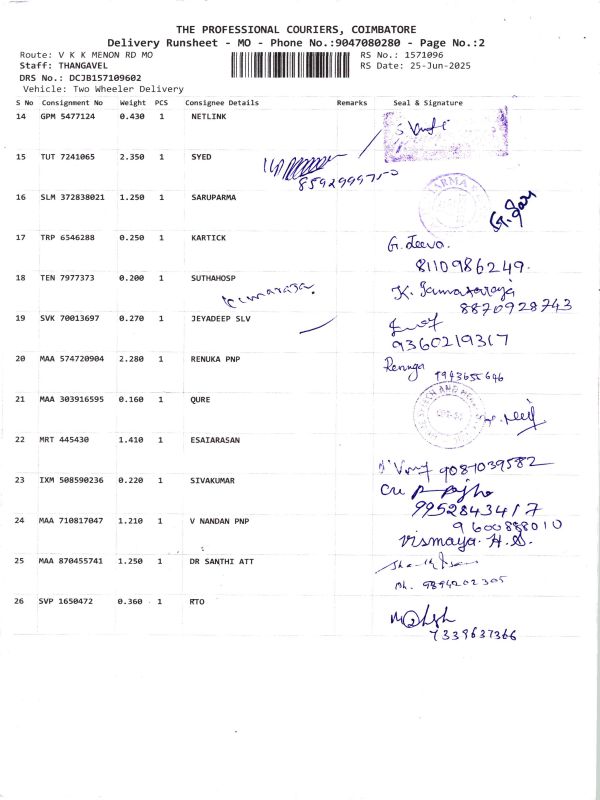 THE PROFESSIONAL COURIERS, COIMBATORE
Delivery Runsheet - MO - Phone No.:9047080280 - Page No.:2
Route: V K K MENON RD MO RS No.: 1571096
Staff: THANGAVEL RS Date: 25-Jun-2025
DRS No.: DCJB157109602
Vehicle: Two Wheeler Delivery
S No Consignment No Weight PCS Consignee Details Remarks Seal & Signature
14 GPM 5477124 0.430 1 NETLINK
15 TUT 7241065 2.350 1 SYED
8592999750
16 SLM 372838021 1.250 1 SARUPARMA
17 TRP 6546288 0.250 1 KARTICK G. Jeeva.
8110986249.
18 TEN 7977373 0.200 1 SUTHAHOSP
8870928743
19 SVK 70013697 0.270 1 JEYADEEP SLV
9360219317
20 MAA 574720904 2.280 1 RENUKA PNP Renuga
9943655646
21 MAA 303916595 0.160 1 QURE
22 MRT 445430 1.410 1 ESAIARASAN
9087039582
23 IXM 508590236 0.220 1 SIVAKUMAR
9952843417
24 MAA 710817047 1.210 1 V NANDAN PNP 9600888010
Vismaya. H.S.
25 MAA 870455741 1.250 1 DR SANTHI ATT
Ph. 9894202305
26 SVP 1650472 0.360 1 RTO
7339637366